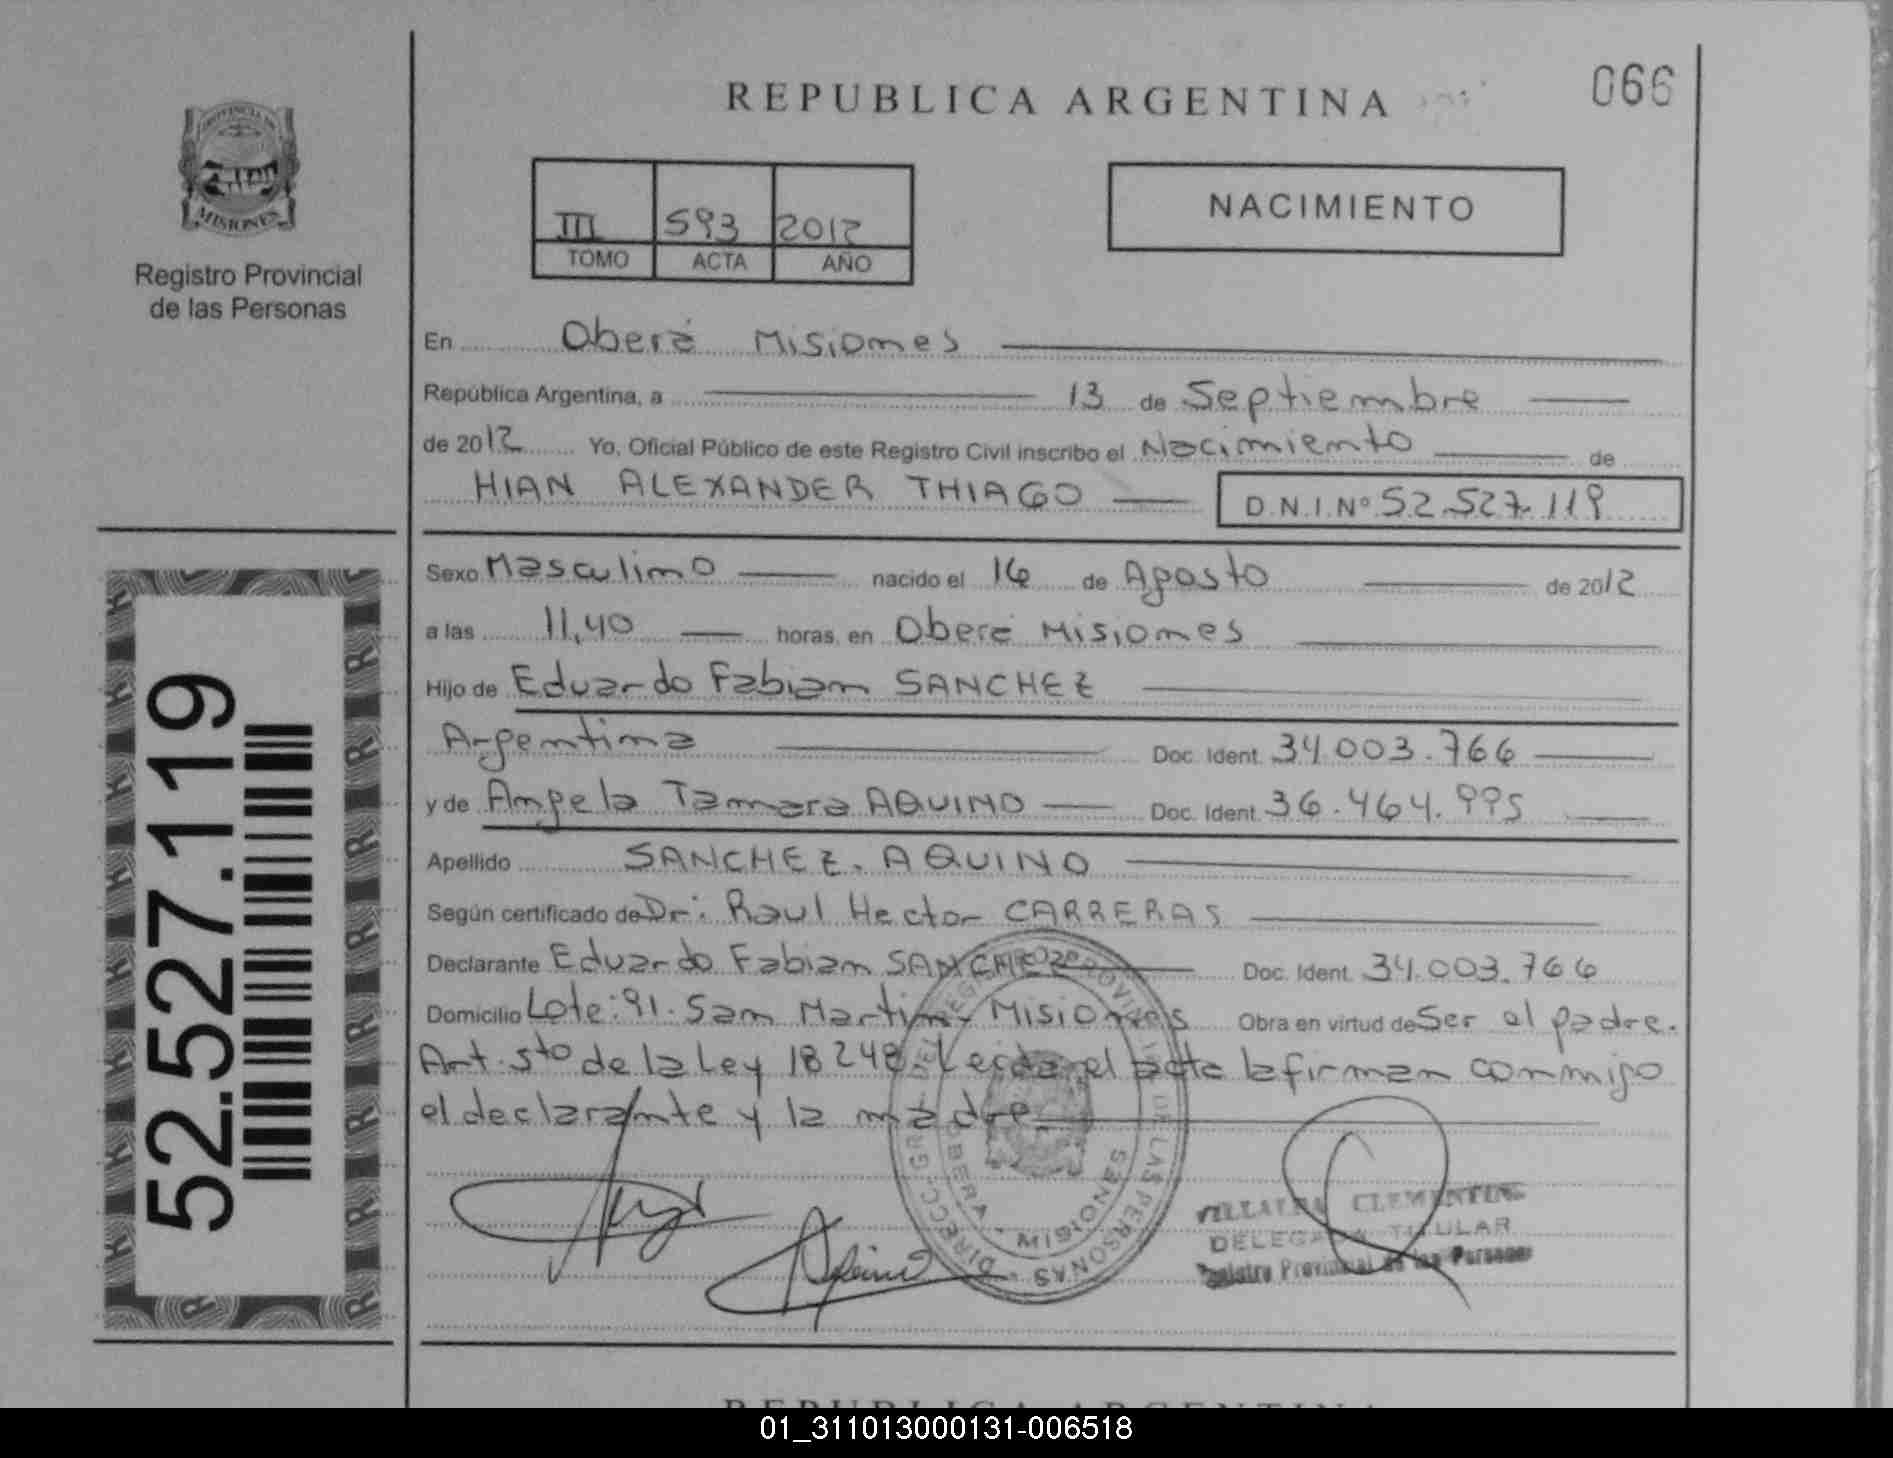 REPUBLICA ARGENTINA
066
PROVINCIA DE
MISIONES
Registro Provincial
de las Personas
III 593 2012
TOMO ACTA AÑO
NACIMIENTO
En Oberá Misiones
República Argentina, a 13 de Septiembre
de 2012 Yo, Oficial Público de este Registro Civil inscribo el Nacimiento de
HIAN ALEXANDER THIAGO D.N.I.Nº 52.527.119
Sexo Masculino nacido el 16 de Agosto de 2012
a las 11,40 horas, en Oberá Misiones
Hijo de Eduardo Fabian SANCHEZ
Argentina Doc. Ident. 34.003.766
y de Angela Tamara AQUINO Doc. Ident. 36.464.995
Apellido SANCHEZ. AQUINO
Según certificado de Dr: Raul Hector CARRERAS
Declarante Eduardo Fabian SANCHEZ Doc. Ident. 34.003.766
Domicilio Lote: 91. San Martin, Misiones Obra en virtud de Ser el padre.
Art. 5to de la Ley 18248. Leida el acta la firman conmigo
el declarante y la madre.
DIRECC. GRAL. DEL REGISTRO PROVINCIAL DE LAS PERSONAS
OBERA - MISIONES
VILLALBA CLEMENTINA
DELEGADA TITULAR
Registro Provincial de las Personas
52.527.119
REPUBLICA ARGENTINA
01_311013000131-006518